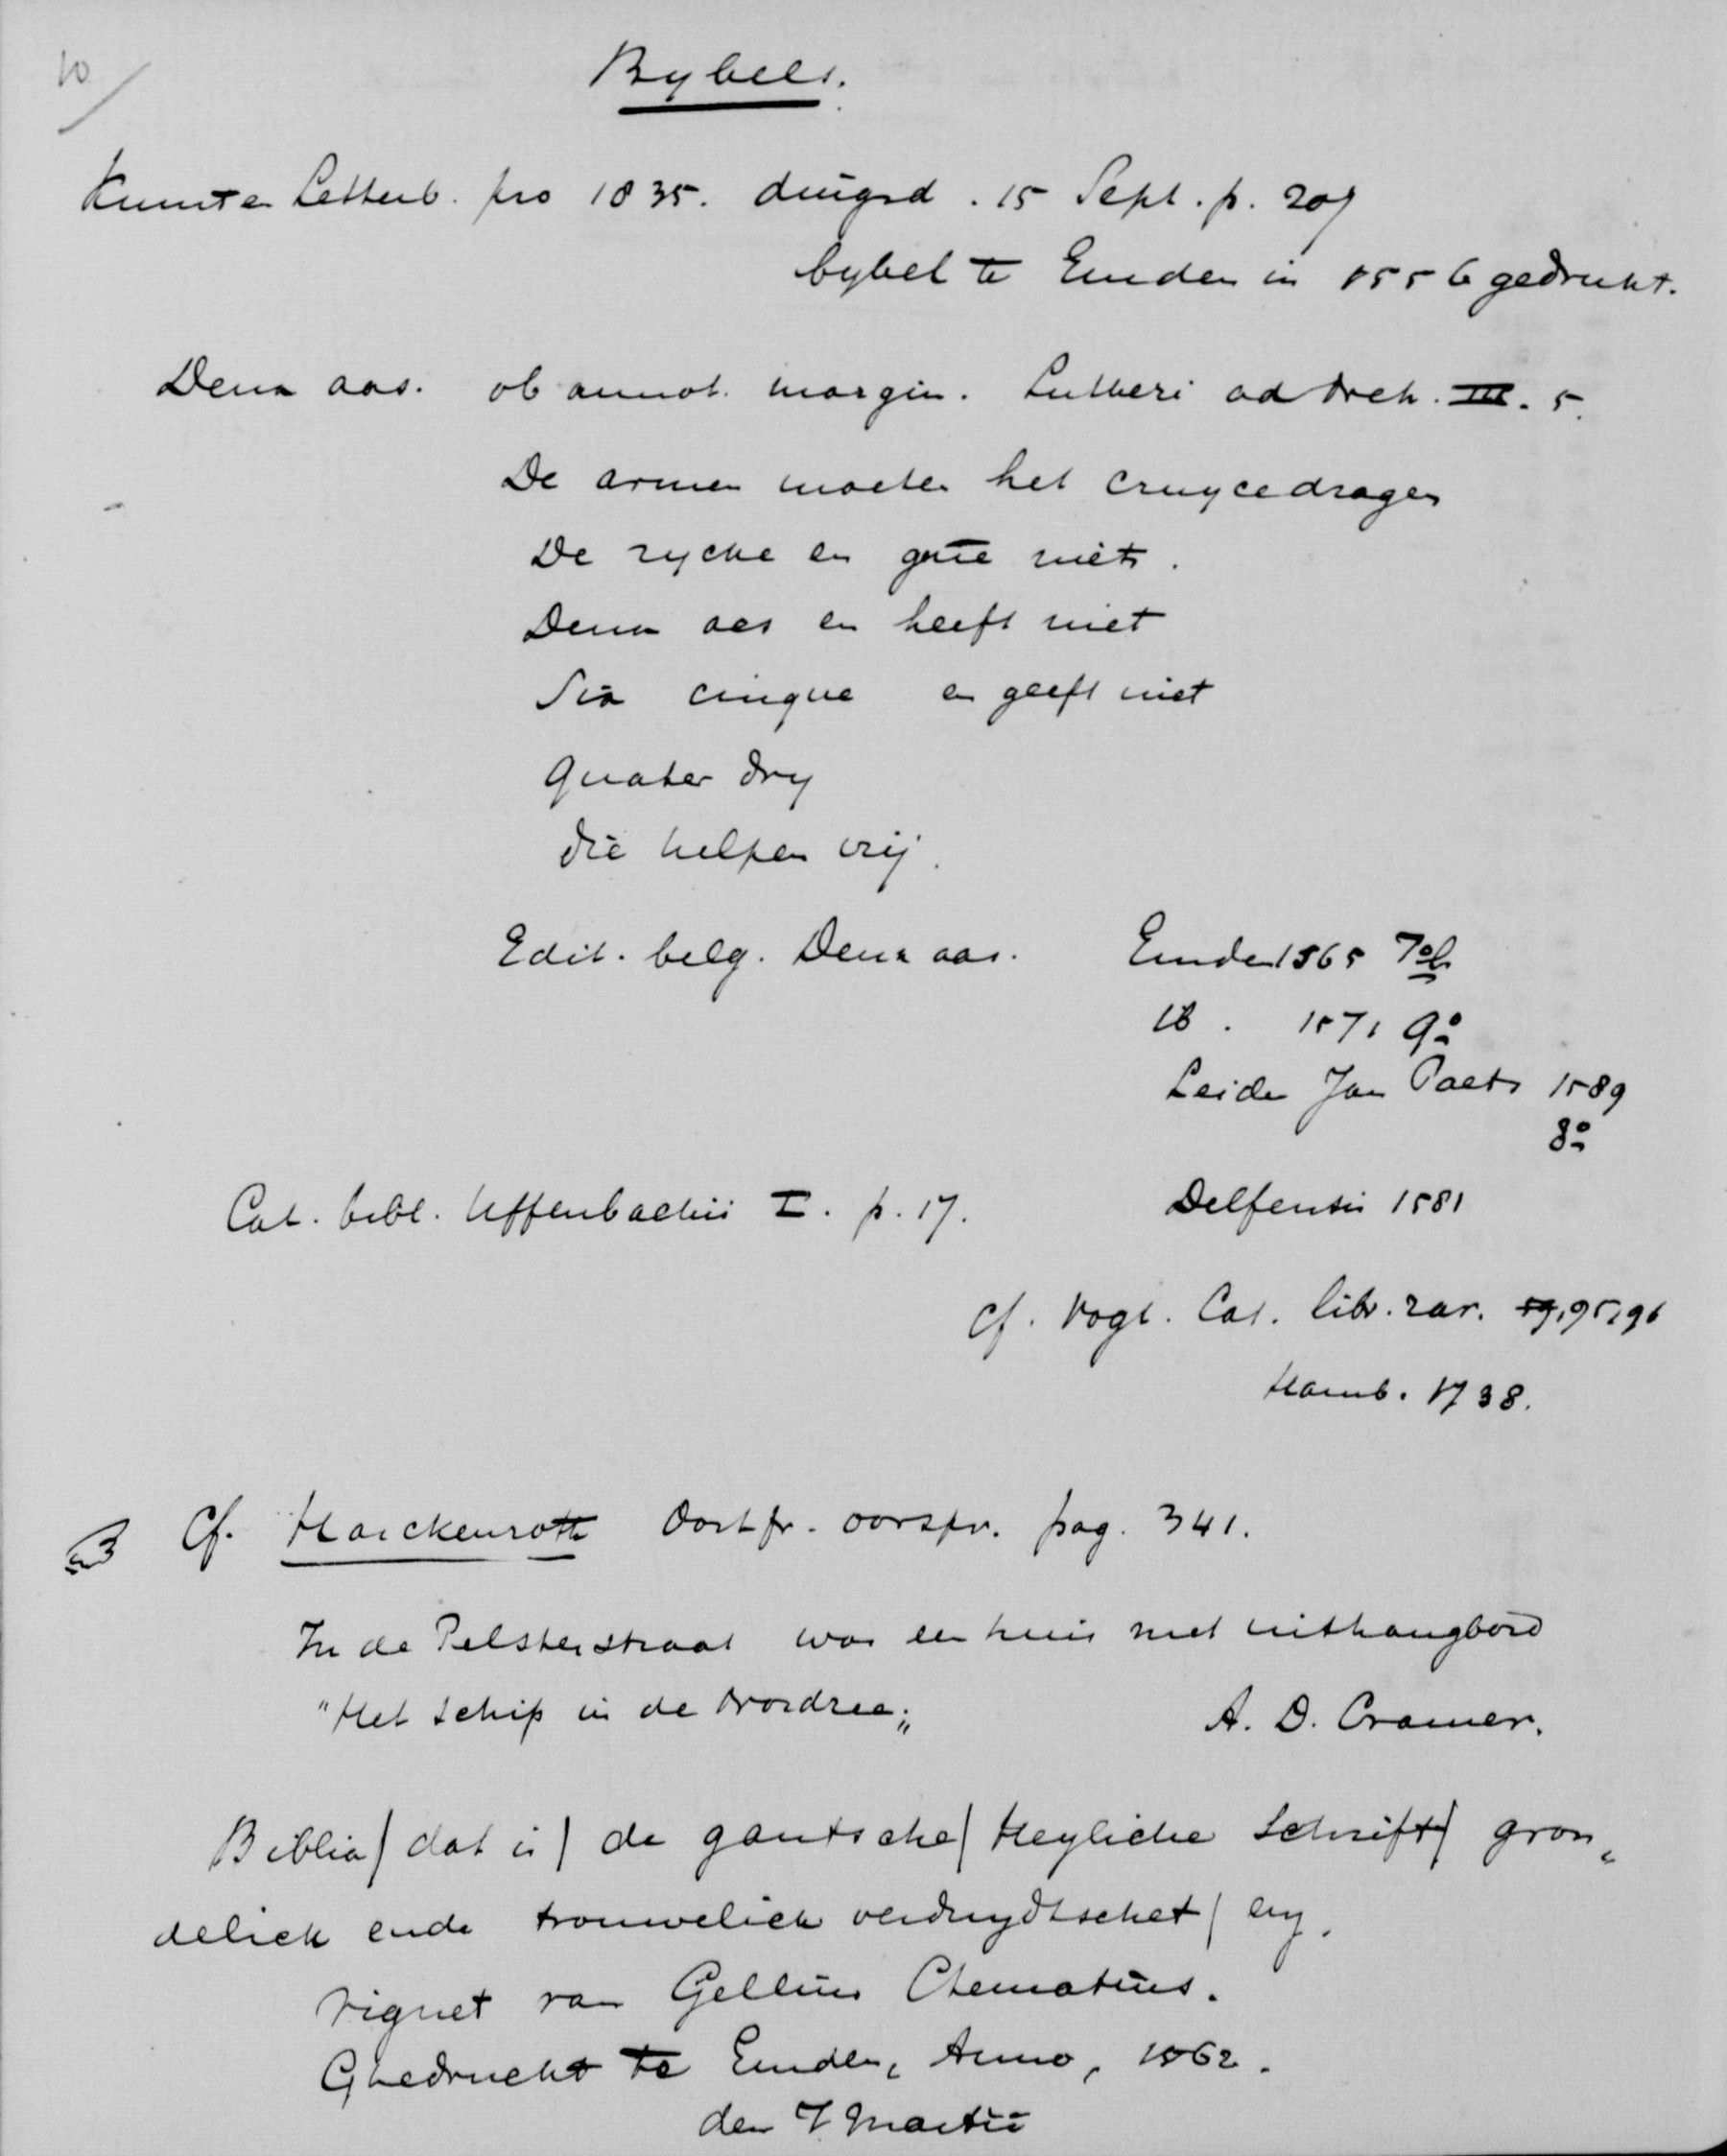 10
Bybels.
Kunst en Letterb. pro 1835. dingsd. 15 Sept. p. 207
bybel te Emden in 1556 gedrukt.
Deux aas. ob annot. margin. Lutheri ad Neh. III. 5.
De armen moeten het cruyce dragen
De rycke en geve niets.
Deux aes en heeft niet
Six cinque en geeft niet
Quater dry
die helpen vrij.
Edit. belg. Deux aas. Emden 1565 Fol.
ib. 1571 4o
Leiden Jan Paets 1589
8o
Cat. bibl. Uffenbachii I. p. 17. Delfensis 1581
cf. Vogt. Cat. libr. rar. 95, 96
Hamb. 1738.
Cf. Harckenroth Oostfr. oorspr. pag. 341.
In de Pelsterstraat was een huis met uithangbord
"Het schip in de Noordzee„ A. D. Cramer.
Biblia / dat is / de gantsche / Heylighe Schrift / gron„
delick ende trouwelick verduydtschet / enz.
Vignet van Gellius Ctematius.
Ghedruckt te Emden, Anno, 1562.
den 7 Martii